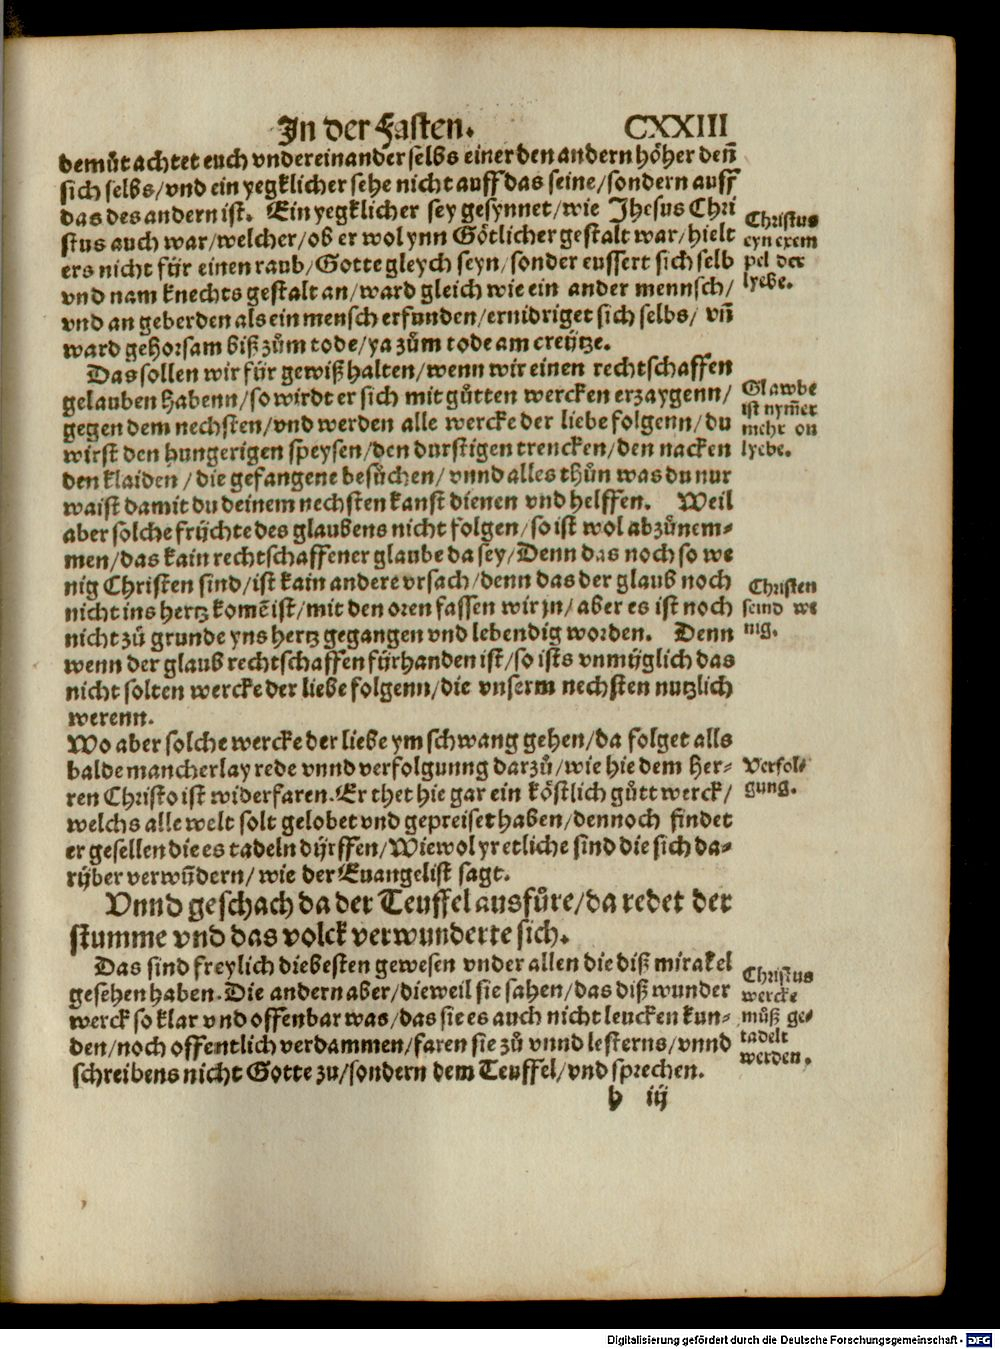 In der Fasten. CXXIII
demuͤt achtet euch vndereinander selbs einer den andern hoͤher deñ
sich selbs/ vnd ein yegklicher sehe nicht auff das seine/ sondern auff
das des andern ist. Ein yegklicher sey gesynnet/ wie Jhesus Chri
stus auch war/ welcher/ ob er wol ynn Goͤtlicher gestalt war/ hielt
ers nicht für einen raub/ Gotte gleych seyn/ sonder eussert sich selb
vnd nam knechts gestalt an/ ward gleich wie ein ander mennsch/
vnd an geberden als ein mensch erfunden/ ernidriget sich selbs/ vñ
ward gehorsam biß zuͦm tode/ ya zuͦm tode am creütze.
Christus
eyn exem
pel der
lyebe.
Das sollen wir für gewiß halten/ wenn wir einen rechtschaffen
gelauben habenn/ so wirdt er sich mit guͦtten wercken erzaygenn/
gegen dem nechsten/ vnd werden alle wercke der liebe folgenn/ du
wirst den hungerigen speysen/ den durstigen trencken/ den nacken
den klaiden/ die gefangene besuͦchen/ vnnd alles thuͦn was du nur
waist damit du deinem nechsten kanst dienen vnd helffen. Weil
aber solche früchte des glaubens nicht folgen/ so ist wol abzuͦnem-
men/ das kain rechtschaffener glaube da sey/ Denn das noch so we
nig Christen sind/ ist kain andere vrsach/ denn das der glaub noch
nicht ins hertz komẽ ist/ mit den oren fassen wir jn/ aber es ist noch
nicht zuͦ grunde yns hertz gegangen vnd lebendig worden. Denn
wenn der glaub rechtschaffen fürhanden ist/ so ists vnmüglich das
nicht solten wercke der liebe folgenn/ die vnserm nechsten nutzlich
werenn.
Glawbe
ist nym̃er
mehr on
lyebe.
Christen
seind we
nig.
Wo aber solche wercke der liebe ym schwang gehen/ da folget alls
balde mancherlay rede vnnd verfolgunng darzuͦ/ wie hie dem Her-
ren Christo ist widerfaren. Er thet hie gar ein koͤstlich guͦtt werck/
welchs alle welt solt gelobet vnd gepreiset haben/ dennoch findet
er gesellen die es tadeln dürffen/ Wiewol yr etliche sind die sich da-
rüber verwũdern/ wie der Euangelist sagt.
Verfol-
gung.
Vnnd geschach da der Teuffel ausfuͦre/ da redet der
stumme vnd das volck verwunderte sich.
Das sind freylich die besten gewesen vnder allen die diß mirakel
gesehen haben. Die andern aber/ dieweil sie sahen/ das diß wunder
werck so klar vnd offenbar was/ das sie es auch nicht leucken kun-
den/ noch offentlich verdammen/ faren sie zuͦ vnnd lesterns/ vnnd
schreibens nicht Gotte zu/ sondern dem Teuffel/ vnd sprechen.
Christus
wercke
muͦß ge-
tadelt
werden.
h iij
Digitalisierung gefördert durch die Deutsche Forschungsgemeinschaft - DFG